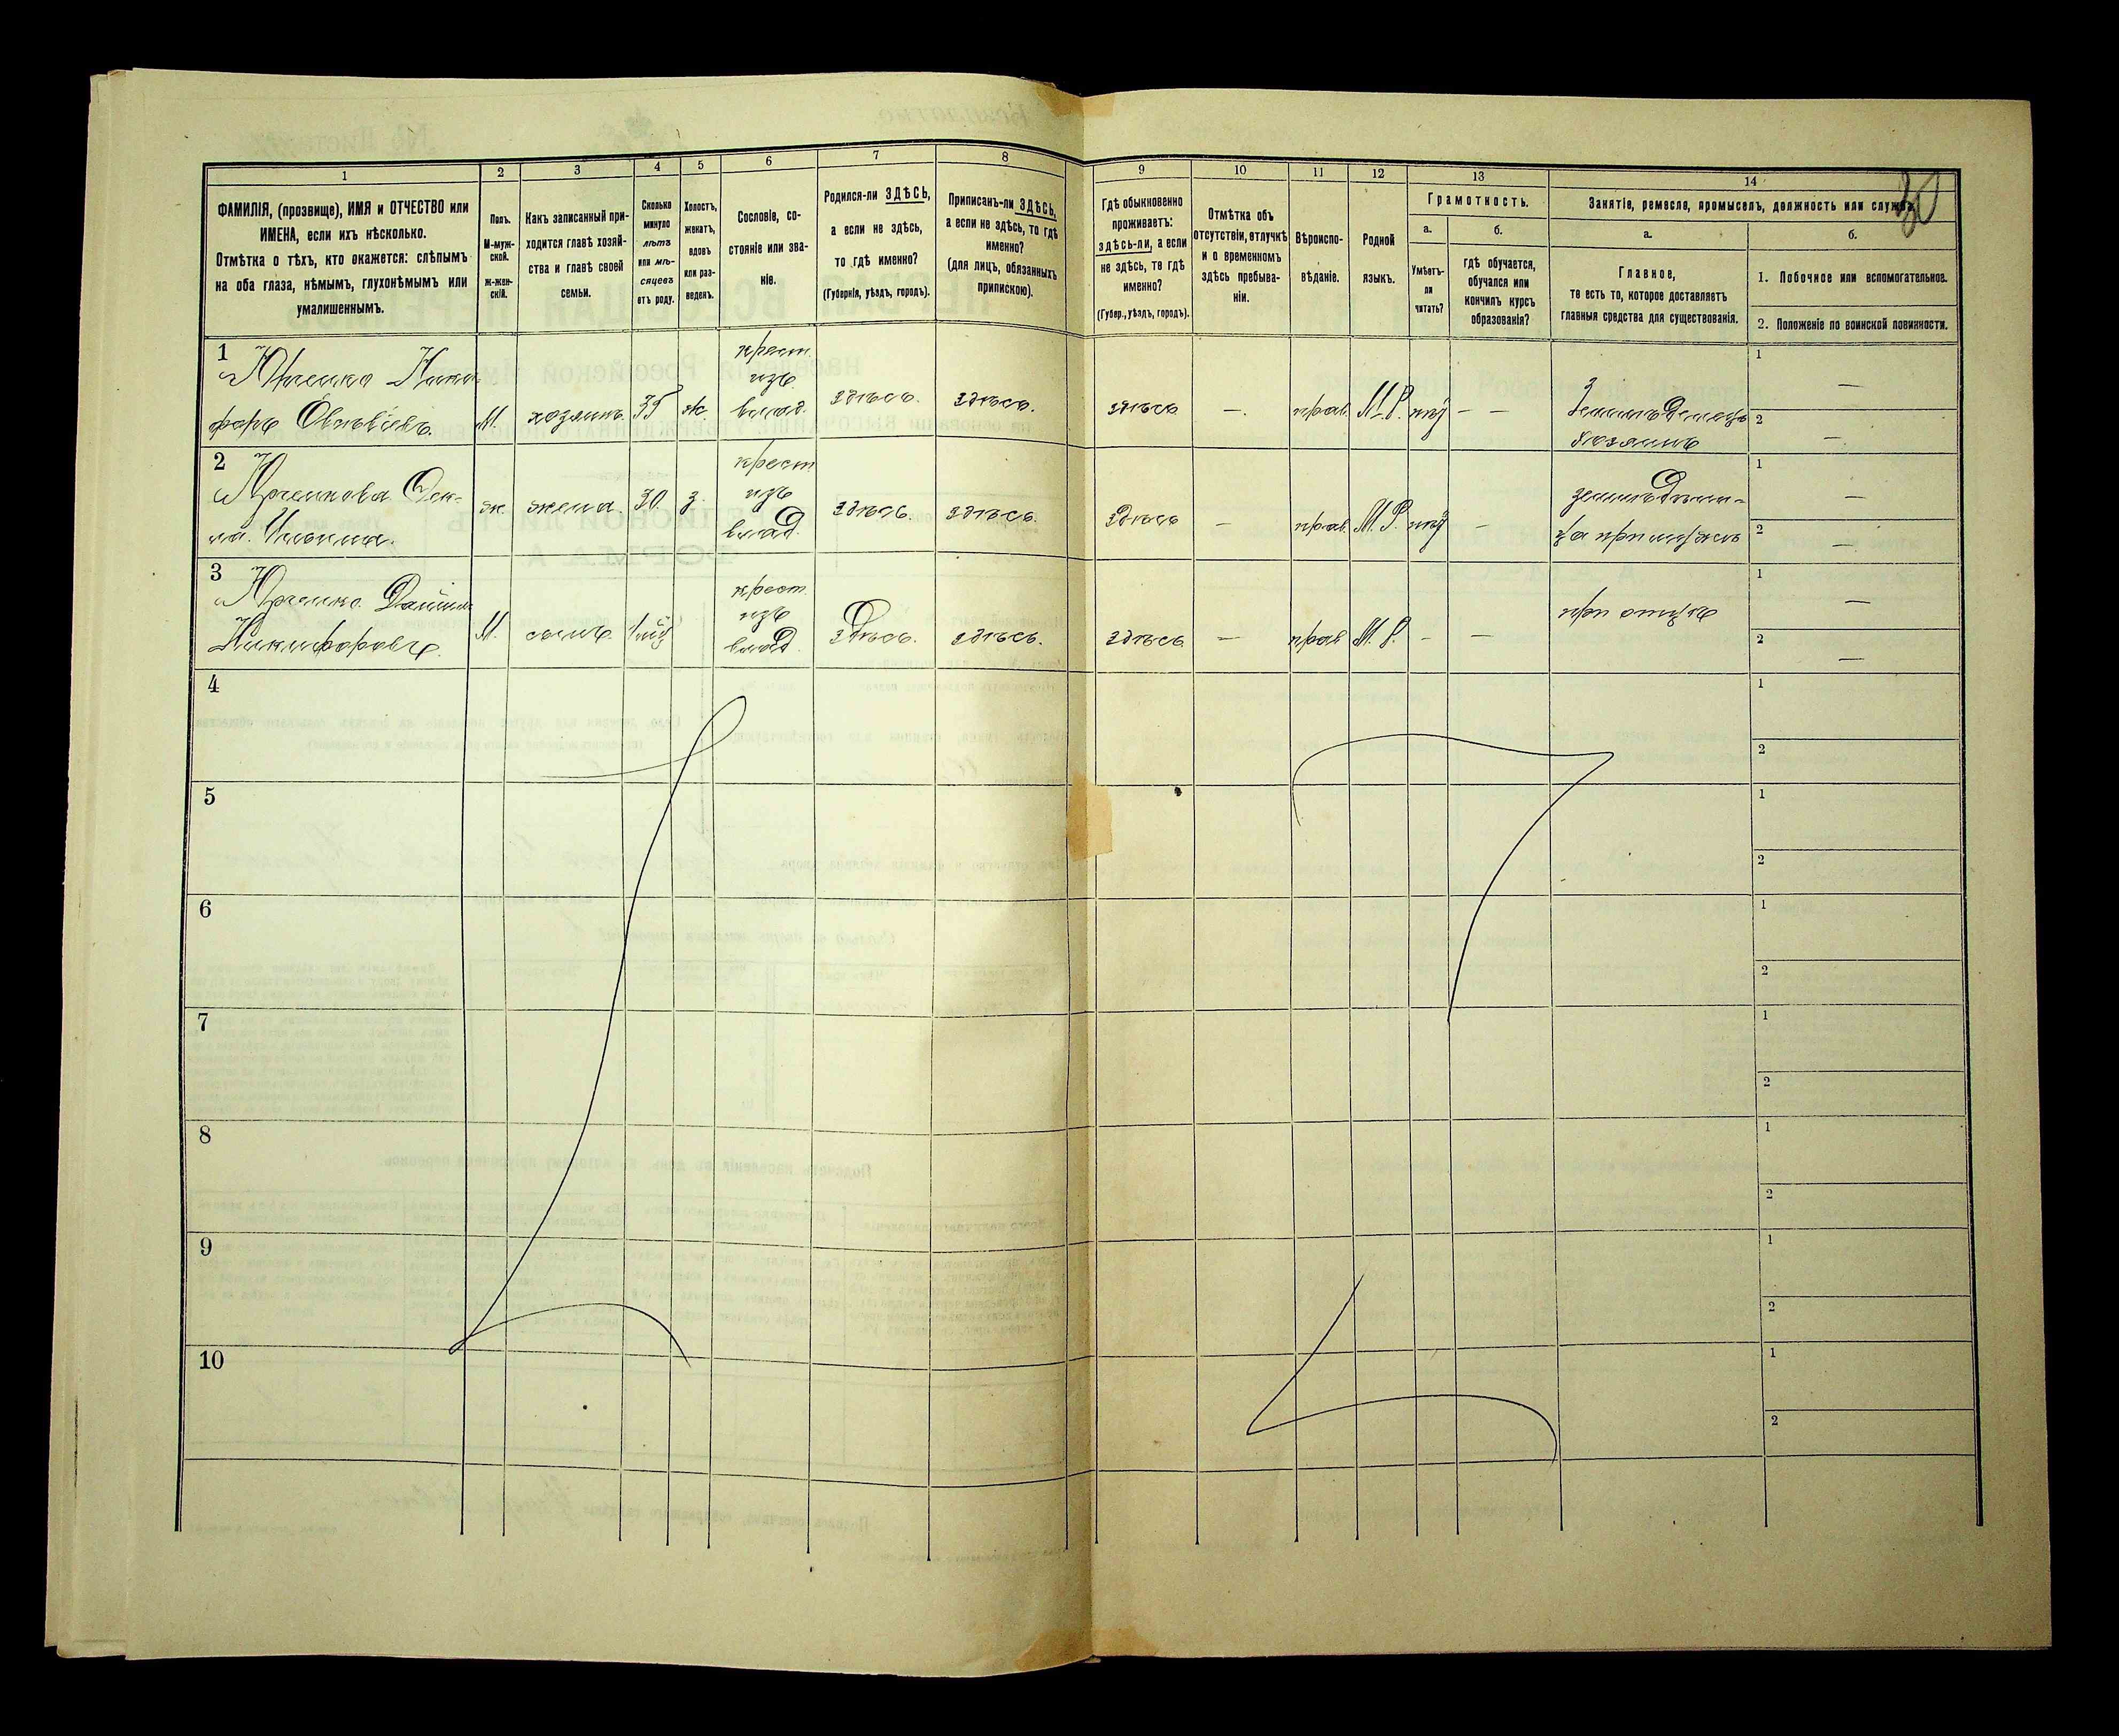 30
1
2
3
4
5
6
7
8
9
10
11
12
13
14
ФАМИЛІЯ, (прозвище), ИМЯ и ОТЧЕСТВО или
ИМЕНА, если ихъ нѣсколько.
Отмѣтка о тѣхъ, кто окажется: слѣпымъ
на оба глаза, нѣмымъ, глухонѣмымъ или
умалишеннымъ.
Полъ.
М-муж-
ской.
Ж-жен-
скій.
Какъ записанный при-
ходится главѣ хозяй-
ства и главѣ своей
семьи.
Сколько
минуло
лѣтъ
или мѣ-
сяцевъ
отъ роду.
Холостъ,
женатъ,
вдовъ
или раз-
веденъ.
Сословіе, со-
стояніе или зва-
ніе.
Родился-ли ЗДѢСЬ,
а если не здѣсь,
то гдѣ именно?
(Губернія, уѣздъ, городъ).
Приписанъ-ли ЗДѢСЬ,
а если не здѣсь, то гдѣ
именно?
(для лицъ, обязанныхъ
припискою).
Гдѣ обыкновенно
проживаетъ:
здѣсь-ли, а если
не здѣсь, то гдѣ
именно?
(Губер., уѣздъ, городъ).
Отмѣтка объ
отсутствіи, отлучкѣ
и о временномъ
здѣсь пребыва-
ніи.
Вѣроиспо-
вѣданіе.
Родной
языкъ.
Грамотность.
а.
Умѣетъ-
ли
читать?
б.
гдѣ обучается,
обучался или
кончилъ курсъ
образованія?
Занятіе, ремесло, промыселъ, должность или служба.
а.
Главное,
то есть то, которое доставляетъ
главныя средства для существованія.
б.
1. Побочное или вспомогательное.
2. Положеніе по воинской повинности.
1
Юрченко Ники-
форъ
М.
хозяинъ
35
ж.
крест.
изъ
влад.
здѣсь.
здѣсь.
здѣсь
—.
прав.
М. Р.
— —
хозяинъ
1 —
2 —
2
Юрченкова
Ильина.
ж
жена.
30.
з.
крест.
изъ
влад.
здѣсь.
здѣсь.
здѣсь
—
прав.
М. Р.
—
при мужѣ
1 —
2 —
3
Юрченко
Никифоровъ.
М.
сынъ.
крест.
изъ
влад.
здѣсь.
здѣсь.
здѣсь
—
прав
М. Р.
—
—
при отцѣ
1 —
2 —
4
1
2
5
1
2
6
1
2
7
1
2
8
1
2
9
1
2
10
1
2